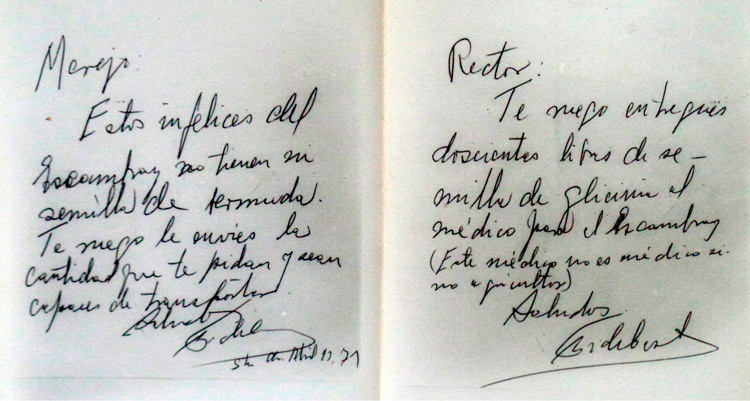 Merejo:
Estos infelices del
Escambray no tienen ni
semilla de bermuda.
Te ruego le envíes la
cantidad que te pidan y sean
capaces de transportar
Saludos
Fidel
Abril 13, 71
Rector:
Te ruego entregues
doscientas libras de se-
milla de glicinia al
médico para el Escambray
(Este médico no es médico si-
no agricultor)
Saludos
Fidel Castro